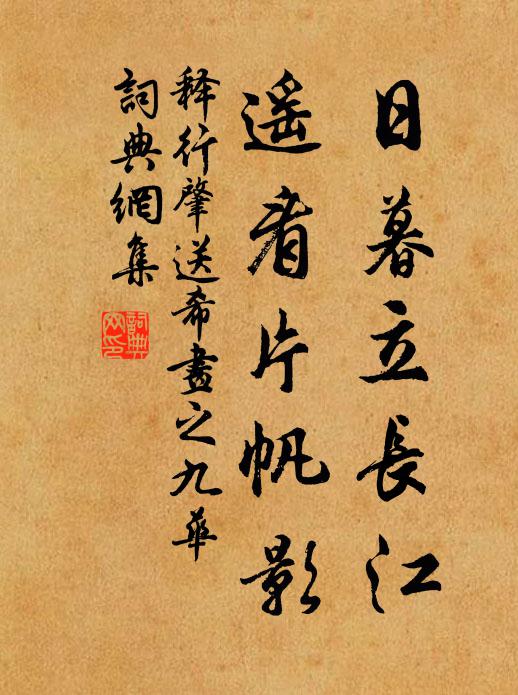 日暮立長江
遥看片帆影
释行肇送希晝之九華
詞典網集
詞典網印